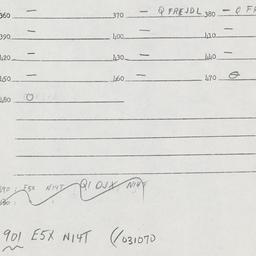 360 — 370 — Q FREJDL 380 — Q F
390 — 400 — 410 —
420 — 430 — 440 —
450 — 460 — 470 ⊖
480 O
490: E5X N14T Q1 OJX N14T
901 E5X N14T (/031070